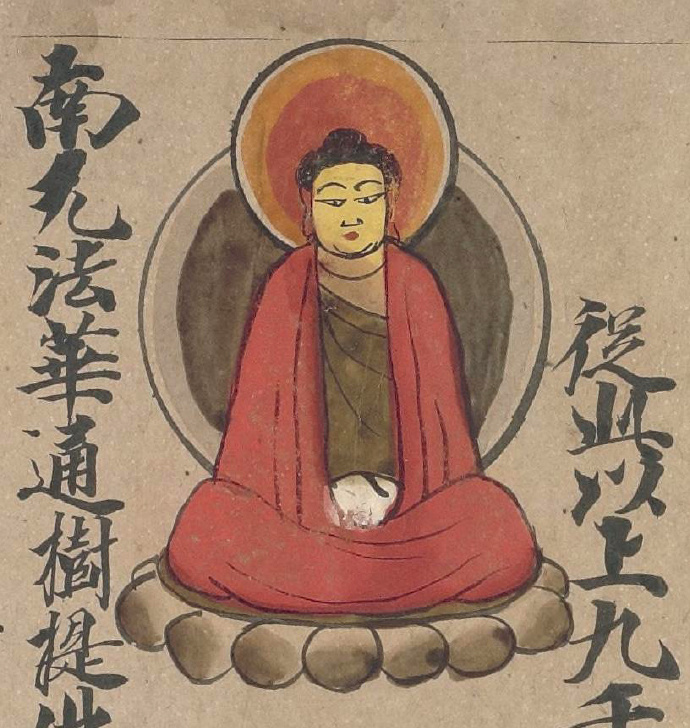 從此以上九千
南无法華通樹提